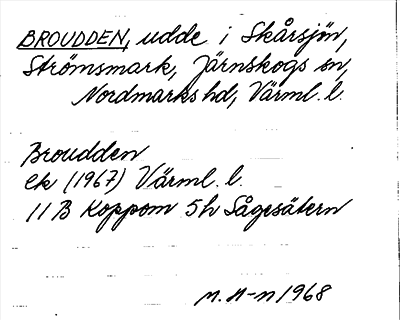 BROUDDEN, udde i Skårsjön,
Strömsmark, Järnskogs sn,
Nordmarks hd, Värml. l.
Broudden
ek (1967) Värml. l.
11 B Koppom 5h Sågesätern
M. A-n 1968